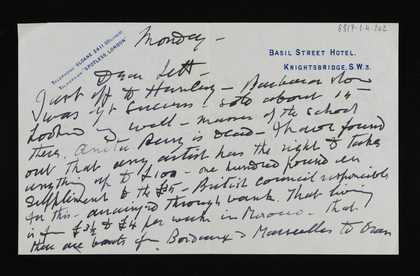 8317.1.4.202
TELEPHONE SLOANE 3411
TELEGRAMS "SPOTLESS, LONDON"
BASIL STREET HOTEL,
KNIGHTSBRIDGE, S.W.3.
Monday –
Dear Lett –
Just off to – Barbara show
was Success! sold about 14 –
Looked well – master of the school
there. Anita Berry is Dead – I have found
out that any artist has the right to take
anything up to £100 – one hundred found as
supplement to the £35 – British council responsible
for this – arranged through bank. That living
is for £3½ to £4 per week in Morocco – that
there are boats from Bordeaux & Marseilles to Oran